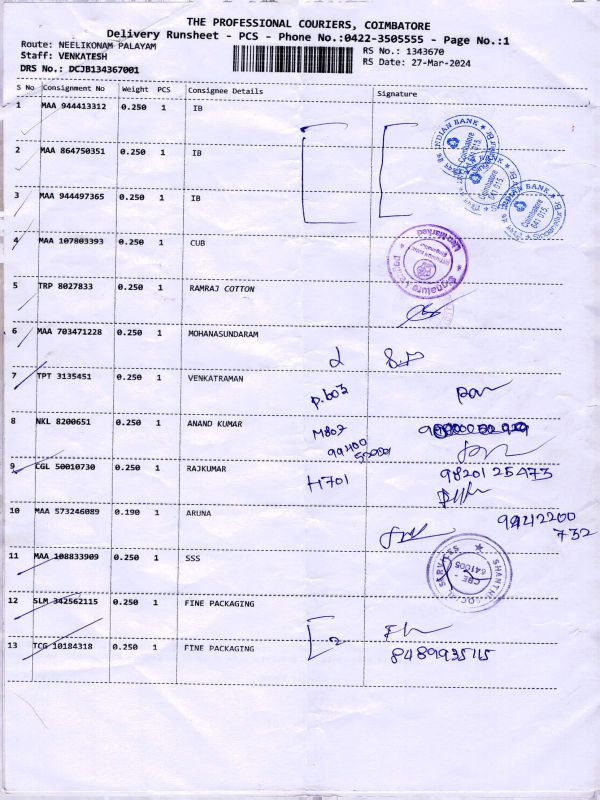 THE PROFESSIONAL COURIERS, COIMBATORE
Delivery Runsheet - PCS - Phone No.:0422-3505555 - Page No.:1
Route: NEELIKONAM PALAYAM
RS No.: 1343670
Staff: VENKATESH
RS Date: 27-Mar-2024
DRS No.: DCJB134367001
S No Consignment No Weight PCS Consignee Details Signature
1 MAA 944413312 0.250 1 IB
2 MAA 864750351 0.250 1 IB
INDIAN BANK
Coimbatore
641 015
3 MAA 944497365 0.250 1 IB
4 MAA 107803393 0.250 1 CUB
5 TRP 8027833 0.250 1 RAMRAJ COTTON
6 MAA 703471228 0.250 1 MOHANASUNDARAM
7 TPT 3135451 0.250 1 VENKATRAMAN
P.603
8 NKL 8200651 0.250 1 ANAND KUMAR
M802
99400
50001
9 CGL 50010730 0.250 1 RAJKUMAR
H701
9820125473
10 MAA 573246089 0.190 1 ARUNA
9942200
732
11 MAA 108833909 0.250 1 SSS
SHANTHI SOCIAL SERVICES
CBE -
641005
12 SLM 342562115 0.250 1 FINE PACKAGING
2
13 TCG 10184318 0.250 1 FINE PACKAGING
8489935115